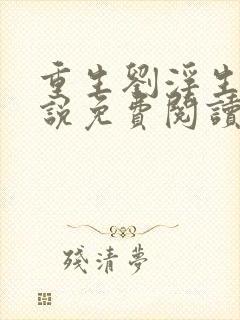 重生劉淫生
說免費閱讀
殘清夢